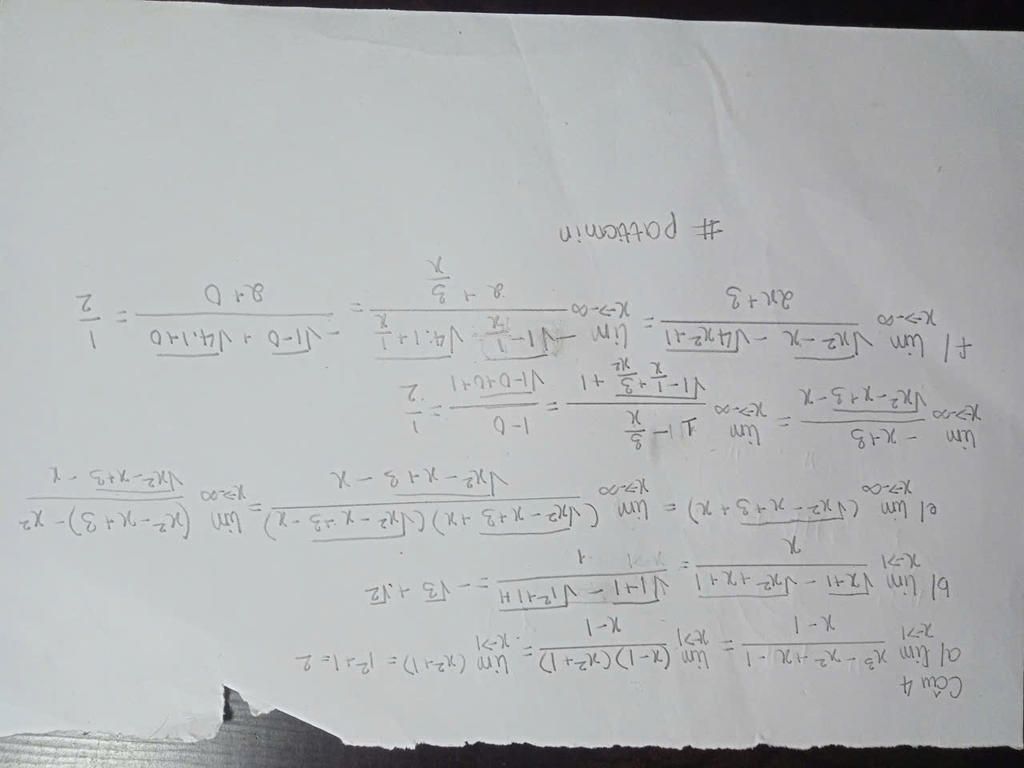 Câu 4
a/ lim x→1 (x³ - x² + x - 1)/(x - 1) = lim x→1 ((x-1)(x²+1))/(x-1) = lim x→1 (x²+1) = 1²+1 = 2
b/ lim x→1 (√(x+1) - √(x²+x+1))/x = (√(1+1) - √(1²+1+1))/1 = -√3 + √2
e/ lim x→-∞ (√(x²-x+3) + x) = lim x→-∞ ((√(x²-x+3) + x)(√(x²-x+3) - x))/(√(x²-x+3) - x) = lim x→-∞ ((x²-x+3) - x²)/(√(x²-x+3) - x)
lim x→-∞ (-x+3)/(√(x²-x+3) - x) = lim x→-∞ (1 - 3/x)/(√(1 - 1/x + 3/x²) + 1) = (1-0)/(√(1-0+0) + 1) = 1/2
f/ lim x→-∞ (√(x²-x) - √(4x²+1))/(2x+3) = lim x→-∞ (-√(1 - 1/x) + √(4.1 + 1/x))/(2 + 3/x) = (-√(1-0) + √(4.1+0))/(2+0) = 1/2
# patiamin